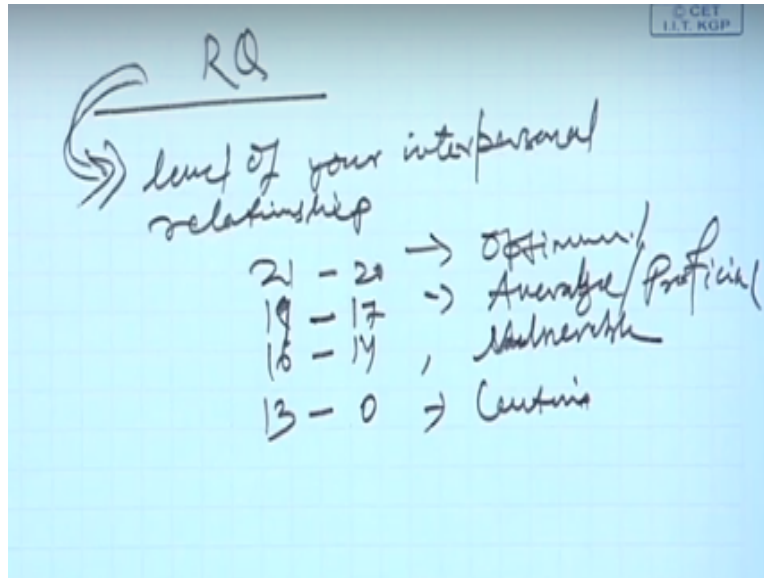 © CET
I.I.T. KGP
RQ
level of your interpersonal
relationship
21 - 20 → Optimum/
19 - 17 → Average/Proficial
16 - 14, Vulnerable
13 - 0 →